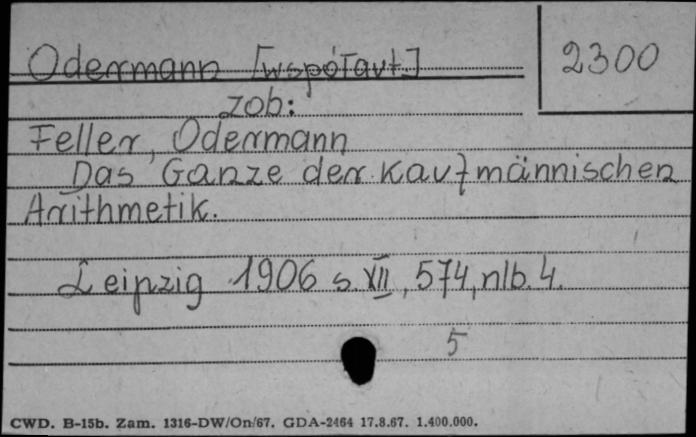 Odermann [współaut.]
2300
zob:
Feller, Odermann
Das Ganze der kaufmännischen
Arithmetik.
Leipzig 1906 s. XII, 574, nlb. 4.
5
CWD. B-15b. Zam. 1316-DW/On/67. GDA-2464 17.8.67. 1.400.000.